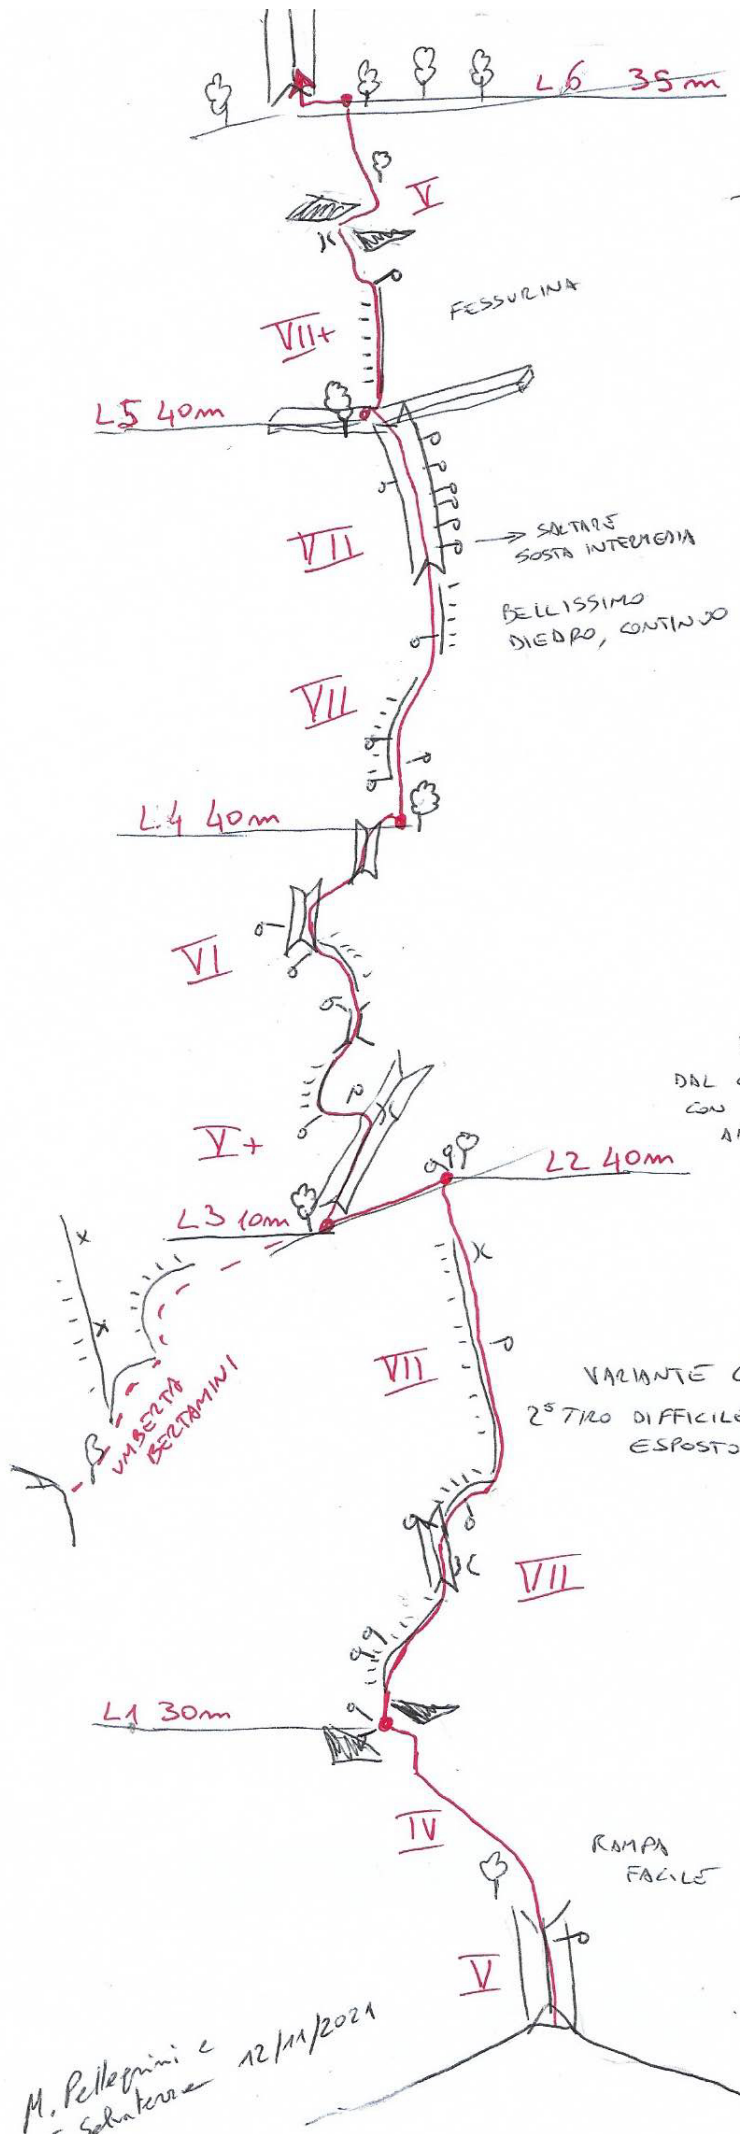 L6 35m
V
FESSURINA
VII+
L5 40m
VII
→ SALTARE
SOSTA INTERMEDIA
BELLISSIMO
DIEDRO, CONTINUO
VII
L4 40m
VI
DAL
CON
V+
L2 40m
L3 10m
VII
UMBERTA
BERTAMINI
VARIANTE
2° TIRO DIFFICILE
ESPOSTO
VII
L1 30m
IV
RAMPA
FACILE
V
M. Pellegrini e
Salvaterra 12/11/2021